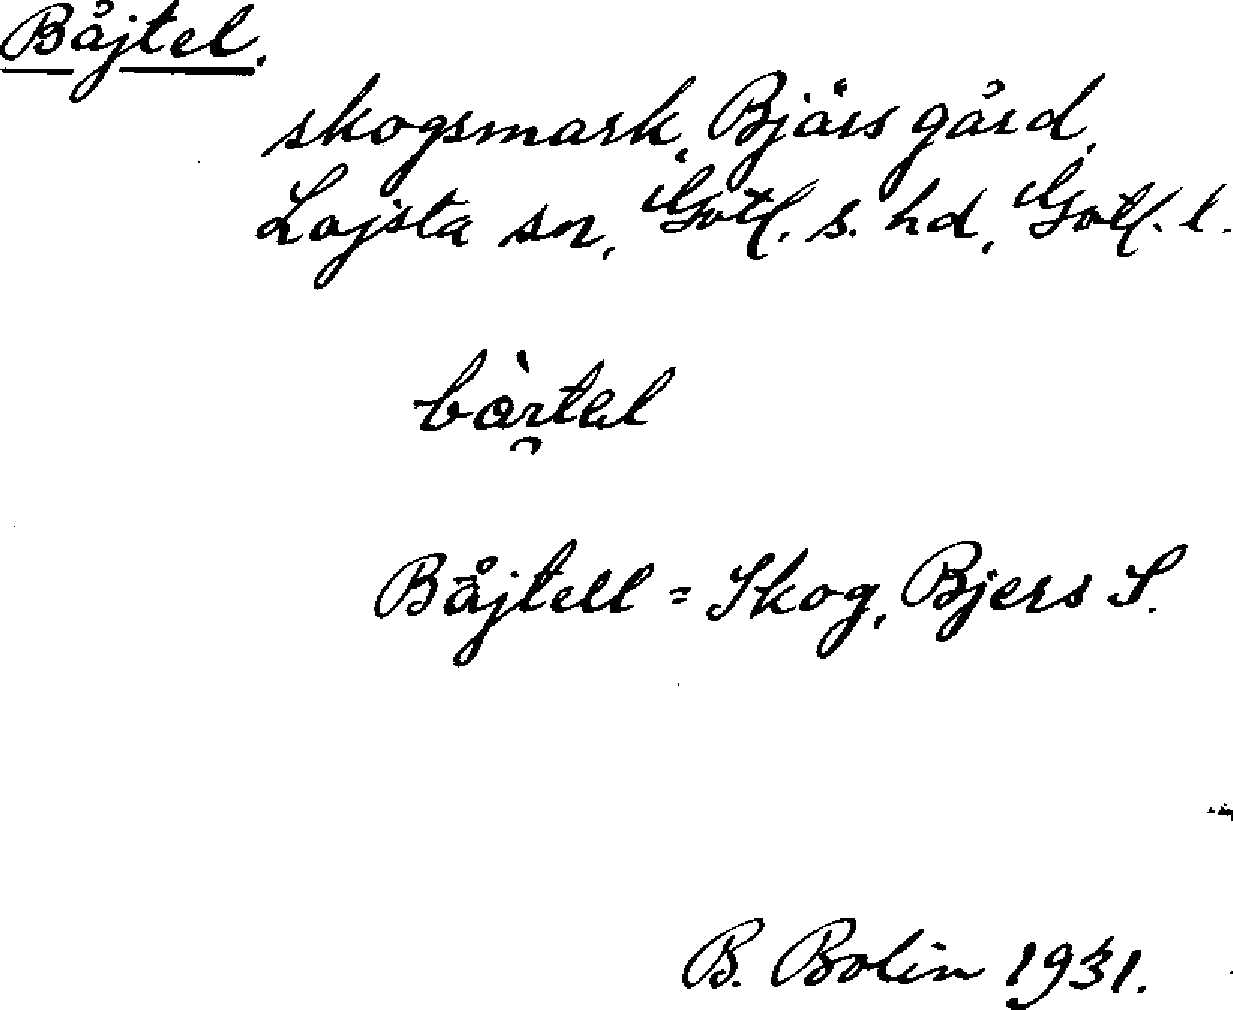 Båjtel.
skogsmark, Bjärs gård,
Lojsta sn, Gotl. s. hd, Gotl. l.
Båjtell = Skog, Bjers S.
B. Bolin 1931.